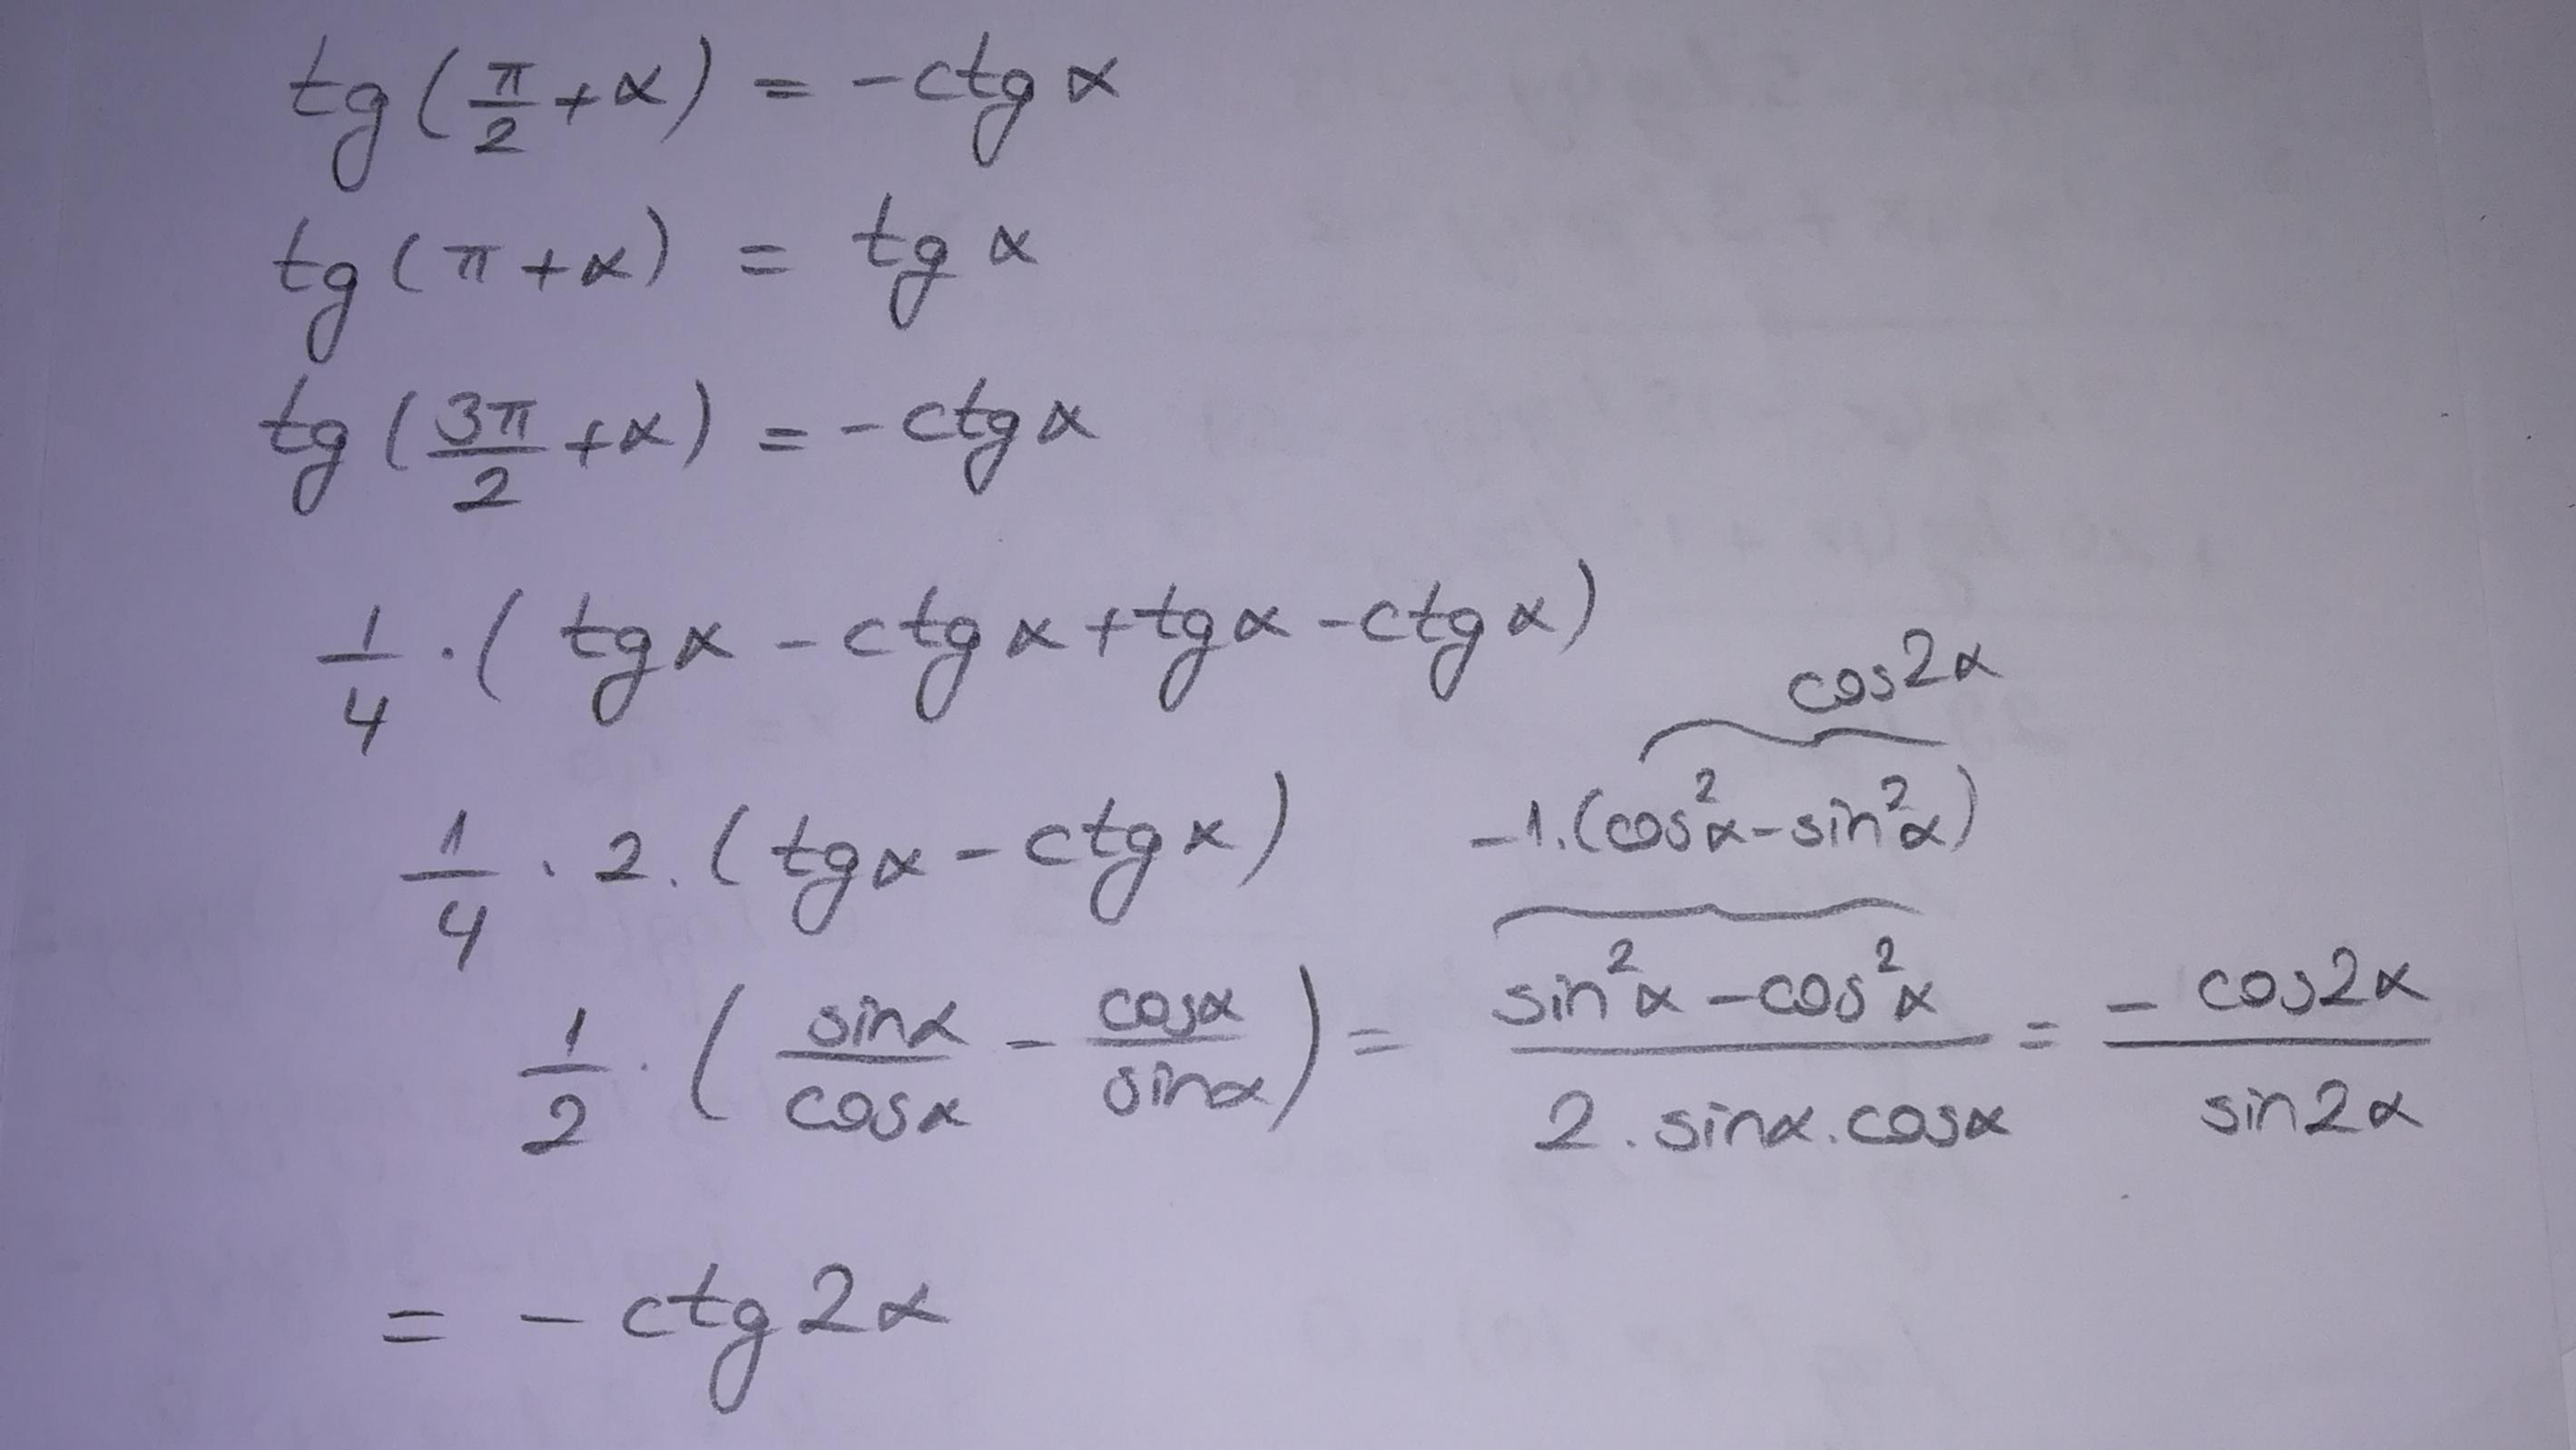 tg(π/2+α) = -ctg α
tg(π+α) = tg α
tg(3π/2+α) = -ctg α
1/4 · (tg α - ctg α + tg α - ctg α)
cos2α
1/4 · 2 · (tg α - ctg α)
-1·(cos²α - sin²α)
1/2 · (sinα/cosα - cosα/sinα) = (sin²α - cos²α)/(2·sinα·cosα) = -cos2α/sin2α
= -ctg 2α